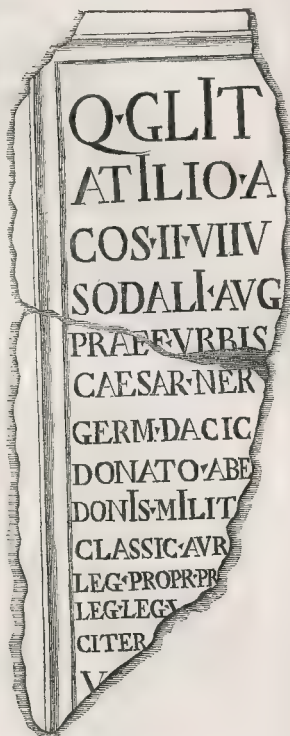 Q·GLIT
ATILIO·A
COS·II·VIIV
SODALI·AVG
PRAEF·VRBIS
CAESAR·NER
GERM·DACIC
DONATO·ABE
DONIS·MILIT
CLASSIC·AVR
LEG·PROPR·PR
LEG·LEG·
CITER
V